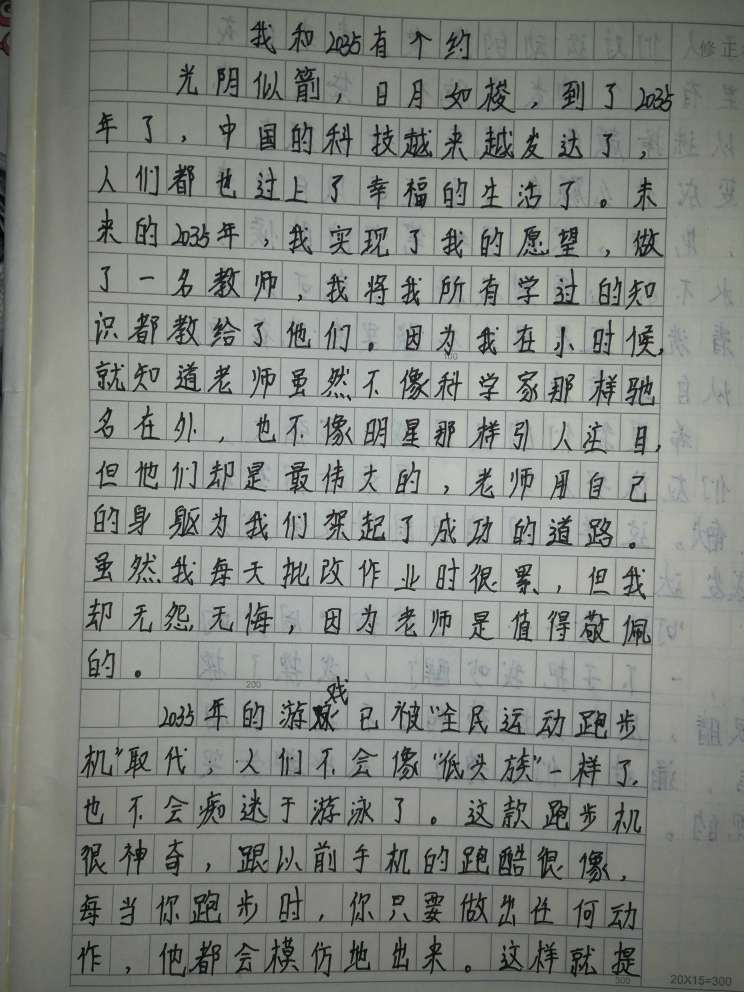 我和2035有个约
光阴似箭，日月如梭，到了2035
年了，中国的科技越来越发达了，
人们都也过上了幸福的生活了。未
来的2035年，我实现了我的愿望，做
了一名教师，我将我所有学过的知
识都教给了他们。因为我在小时候，
就知道老师虽然不像科学家那样驰
名在外，也不像明星那样引人注目，
但他们却是最伟大的，老师用自己
的身躯为我们架起了成功的道路。
虽然我每天批改作业时很累，但我
却无怨无悔，因为老师是值得敬佩
的。
2035年的游戏已被“全民运动跑步
机”取代，人们不会像“低头族”一样了，
也不会痴迷于游泳了。这款跑步机
很神奇，跟以前手机的跑酷很像，
每当你跑步时，你只要做出任何动
作，他都会模仿地出来。这样就提
修正
100
200
300
20X15=300